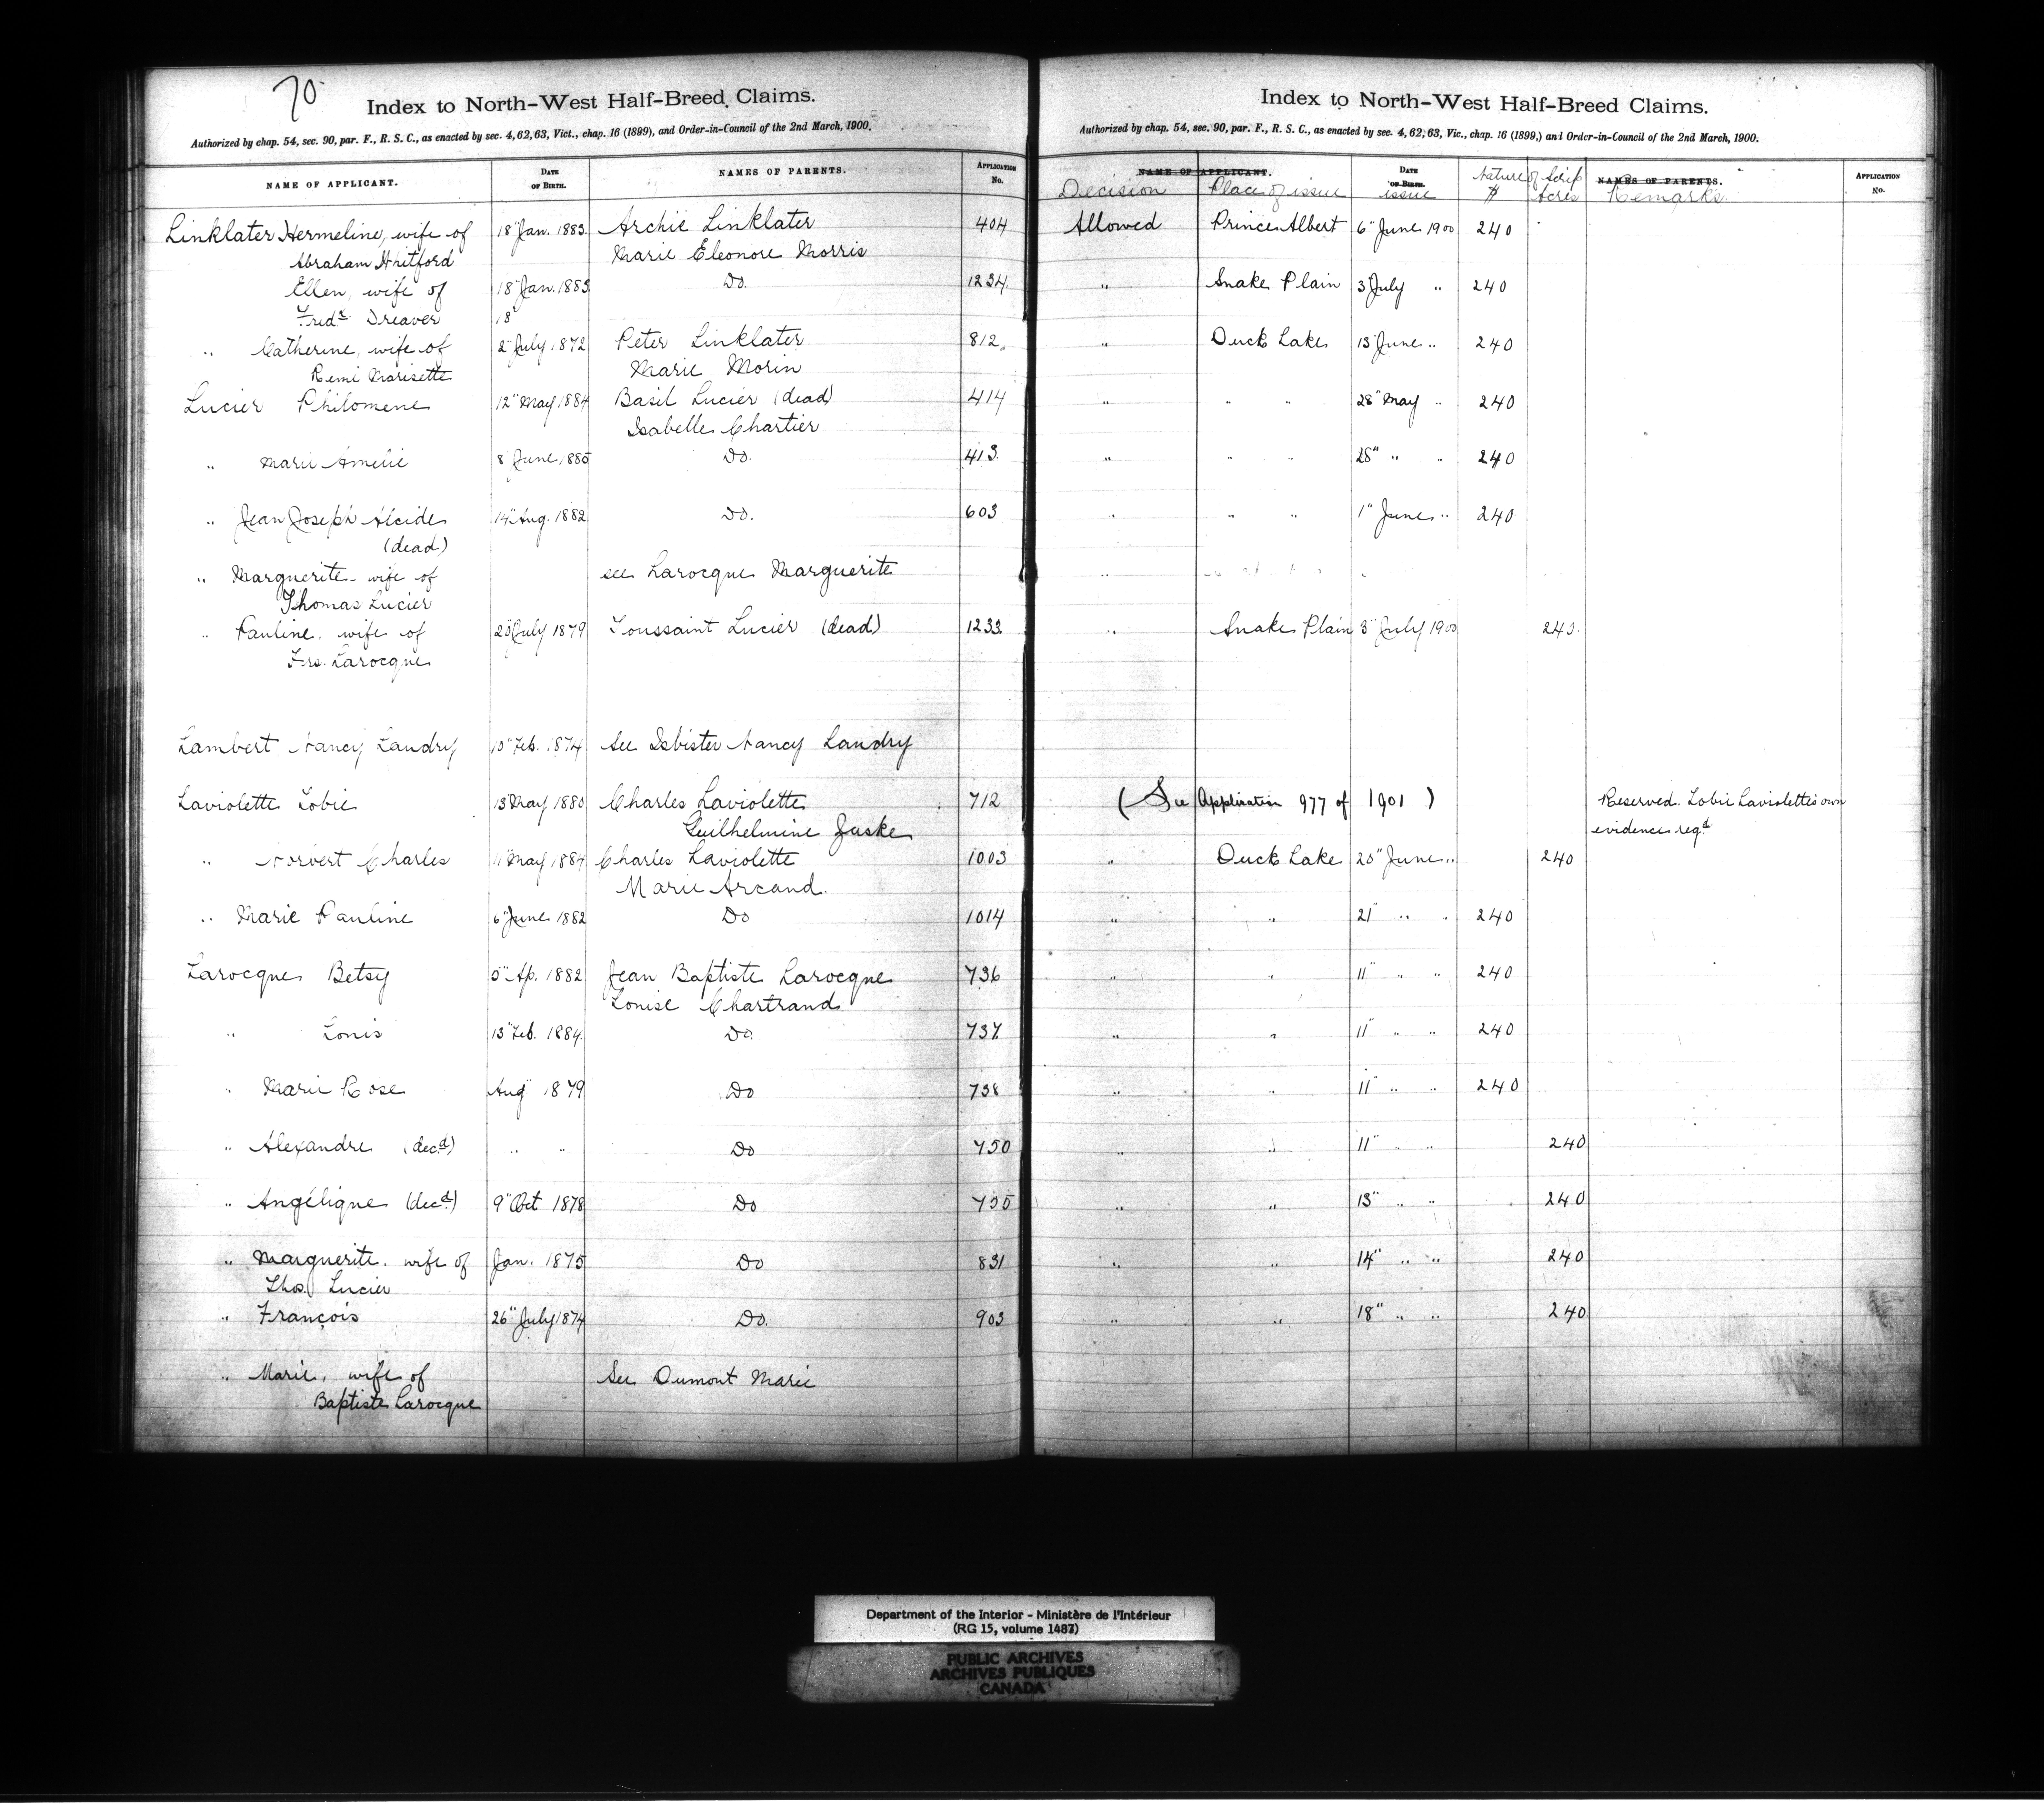 70
Index to North-West Half-Breed Claims.
Authorized by chap. 54, sec. 90, par. F., R. S. C., as enacted by sec. 4, 62, 63, Vict., chap. 16 (1899), and Order-in-Council of the 2nd March, 1900.
NAME OF APPLICANT. DATE OF BIRTH. NAMES OF PARENTS. APPLICATION No.
Linklater Hermeline, wife of 18" Jan. 1883. Archie Linklater 404
Abraham Whitford Marie Eleonore Morris
Ellen, wife of 18" Jan. 1883 Do. 1234.
Fredk Dreaver 18"
" Catherine, wife of 2" July 1872 Peter Linklater 812.
Remi Parisette Marie Morin
Lucier Philomene 12" May 1884 Basil Lucier (dead) 414
Isabelle Chartier
" Marie Amelie 8" June 1885 Do. 413.
" Jean Joseph Alcide 14" Aug. 1882 Do. 603
(dead)
" Marguerite wife of see Larocque Marguerite
Thomas Lucier
" Pauline, wife of 20" July 1879 Toussaint Lucier (dead) 1233
Frs. Larocque
Lambert Nancy Landry 10" Feb. 1874 See Isbister Nancy Landry
Laviolette Tobie 13" May 1880 Charles Laviolette 712
Guilhelmine Jaske
" Norbert Charles 11" May 1884 Charles Laviolette 1003
Marie Arcand.
" Marie Pauline 6" June 1882 Do 1014
Larocque Betsy 5" Ap. 1882 Jean Baptiste Larocque 736
Louise Chartrand
" Louis 13" Feb. 1884. Do. 737.
" Marie Rose Aug" 1879 Do 738
" Alexandre (decd) " " Do 750
" Angélique (decd) 9" Oct 1878 Do 755
" Marguerite, wife of Jan. 1875 Do 831
Thos. Lucier
" François 26" July 1874 Do. 903
" Marie, wife of See Dumont Marie
Baptiste Larocque
Index to North-West Half-Breed Claims.
Authorized by chap. 54, sec. 90, par. F., R. S. C., as enacted by sec. 4, 62, 63, Vic., chap. 16 (1899,) and Order-in-Council of the 2nd March, 1900.
NAME OF APPLICANT. DATE OF BIRTH. NAMES OF PARENTS. APPLICATION No.
Decision Place of issue issue Nature of Scrip $ Acres Remarks.
Allowed Prince Albert 6" June 1900 240
" Snake Plain 3 July " 240
" Duck Lake 13" June " 240
" " " 28" May " 240
" " " 28" " " 240
" " " 1" June " 240
"
" Snake Plain 3" July 1900 240.
(See Application 977 of 1901) Reserved. Tobie Laviolette's own
evidence reqd
" Duck Lake 20" June " 240
" " 21" " " 240
" " 11" " " 240
" " 11" " " 240
" " 11" " " 240
" " 11" " " 240
" " 13" " " 240
" " 14" " " 240
" " 18" " " 240
Department of the Interior - Ministère de l'Intérieur
(RG 15, volume 1487)
PUBLIC ARCHIVES
ARCHIVES PUBLIQUES
CANADA